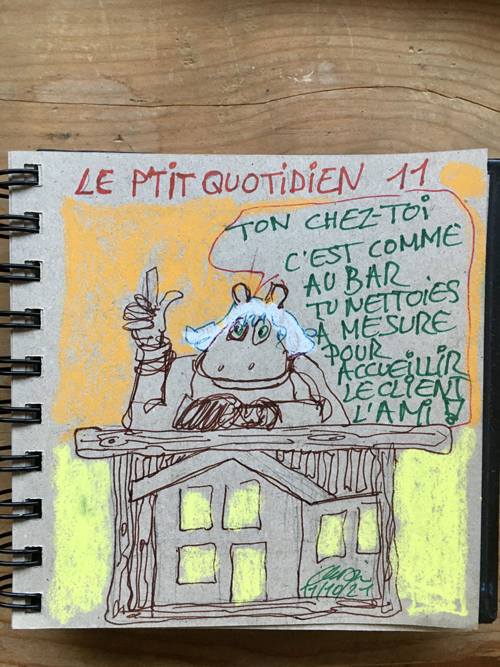 LE P'TIT QUOTIDIEN 11
TON CHEZ-TOI
C'EST COMME
AU BAR
TU NETTOIES
A MESURE
POUR
ACCUEILLIR
LE CLIENT
L'AMI!
11/10/21